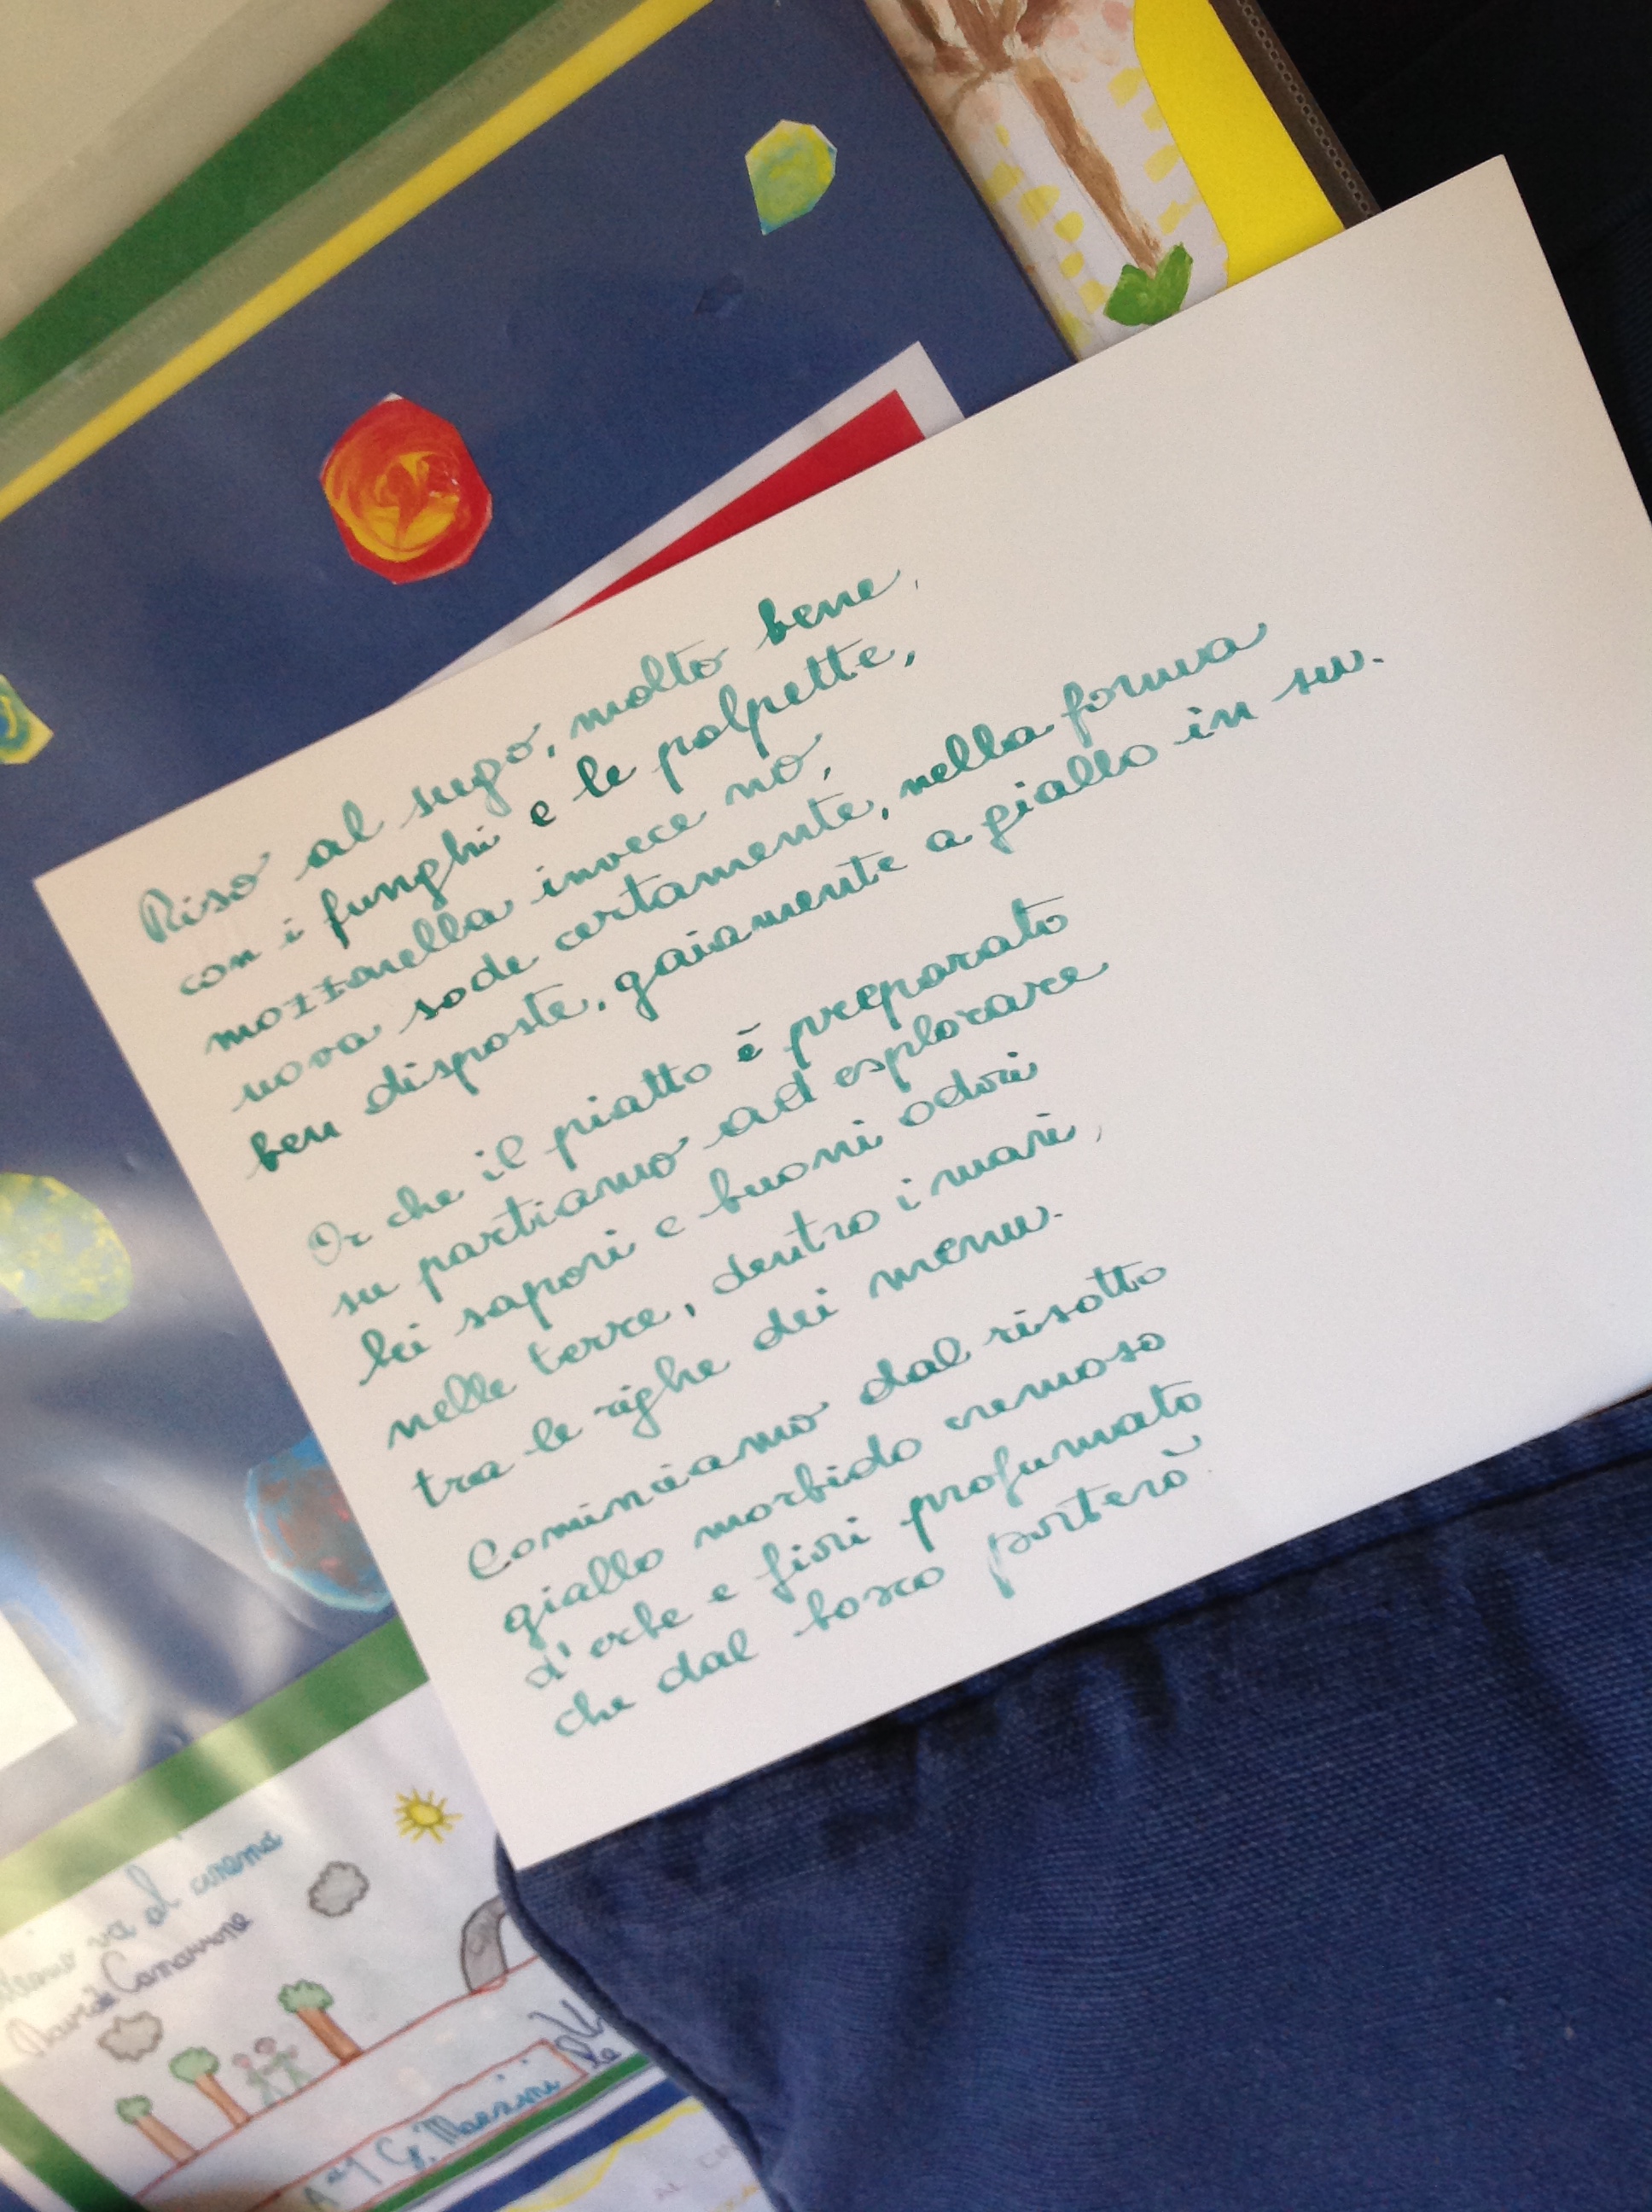 Riso al sugo, molto bene,
con i funghi e le polpette,
mozzarella invece no,
uova sode certamente, nella forma
ben disposte, gaiamente a giallo in su.
Or che il piatto è preparato
su partiamo ad esplorare
lei sapori e buoni odori
nelle terre, dentro i mari,
tra le righe dei menu.
Cominciamo dal risotto
giallo morbido cremoso
d'erbe e fiori profumato
che dal bosco porterò
va al cinema
Davide
G. Mazzini